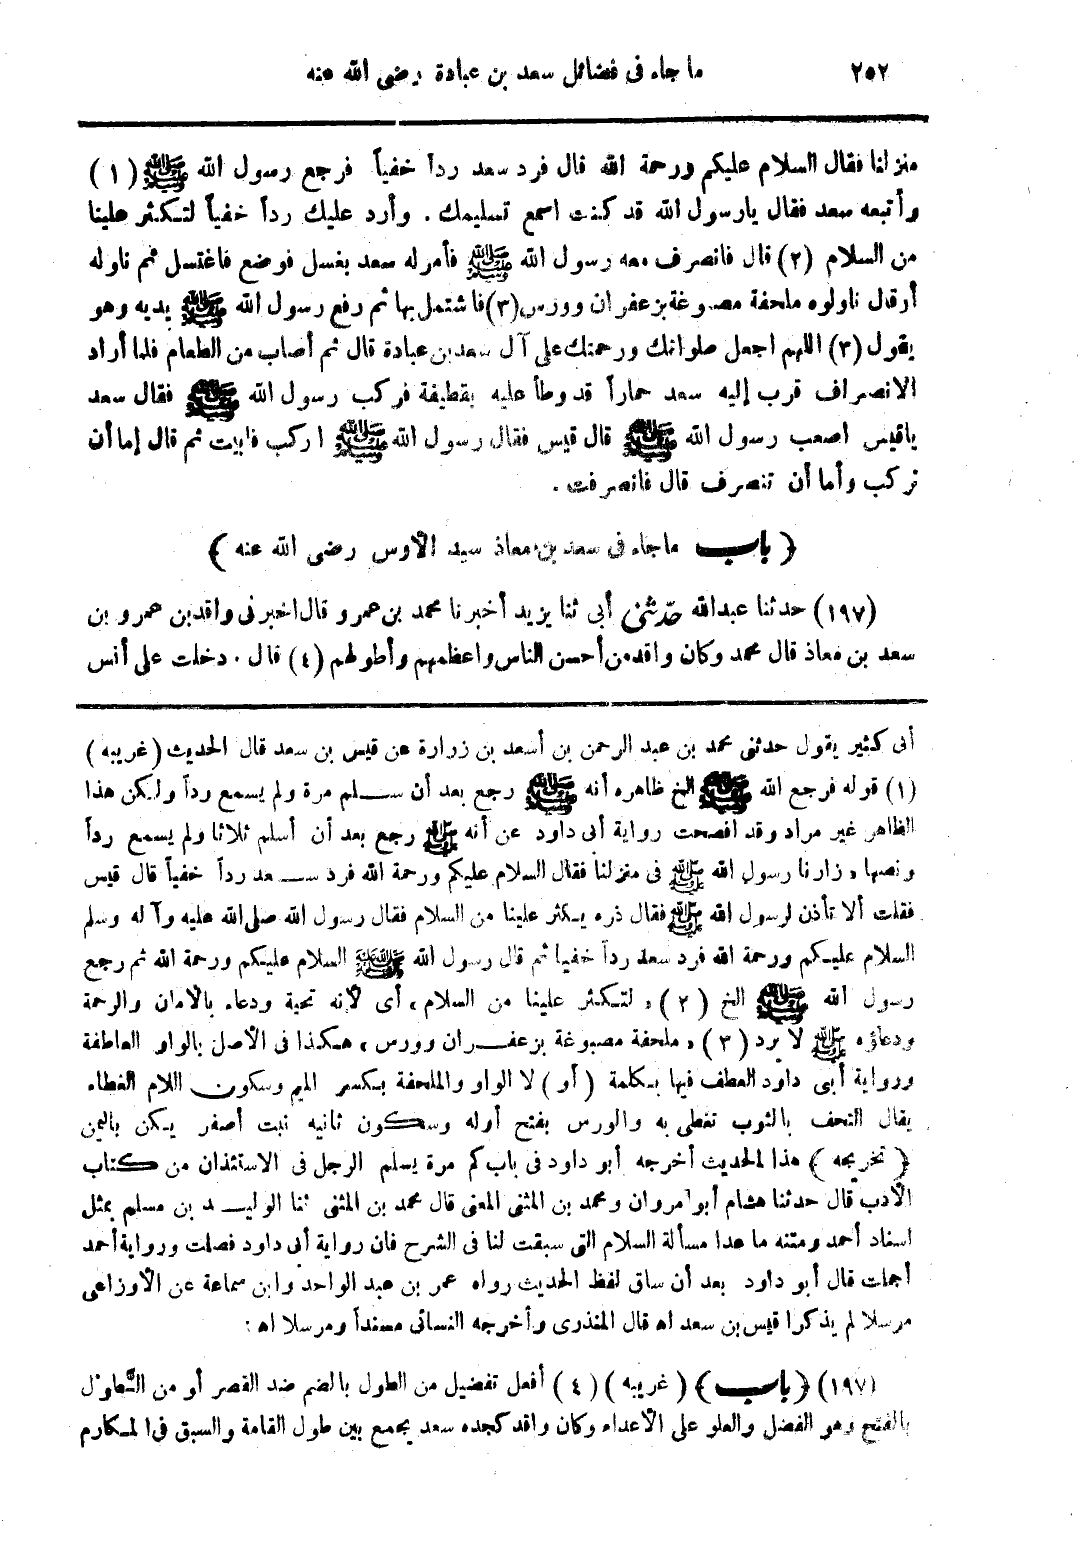 ٢٥٢ ما جاء فى فضائل سعد بن عبادة رضى الله عنه
منزلنا فقال السلام عليكم ورحمة الله قال فرد سعد رداً خفياً فرجع رسول الله ﷺ (١)
وأتبعه سعد فقال يارسول الله قد كنت اسمع تسليمك . وأرد عليك رداً خفياً لتكثر علينا
من السلام (٢) قال فانصرف معه رسول الله ﷺ فأمر له سعد بغسل فوضع فاغتسل ثم ناوله
أو قال ناولوه ملحفة مصبوغة بزعفران وورس (٣) فاشتمل بها ثم رفع رسول الله ﷺ يديه وهو
يقول (٣) اللهم اجعل صلواتك ورحمتك على آل سعد بن عبادة قال ثم أصاب من الطعام فلما أراد
الانصراف قرب إليه سعد حماراً قد وطأ عليه بقطيفة فركب رسول الله ﷺ فقال سعد
ياقيس اصحب رسول الله ﷺ قال قيس فقال رسول الله ﷺ اركب فابيت ثم قال إما أن
تركب وأما أن تنصرف قال فانصرفت .
﴿ باب ماجاء فى سعد بن معاذ سيد الأوس رضى الله عنه ﴾
(١٩٧) حدثنا عبدالله حدثنى أبى ثنا يزيد أخبرنا محمد بن عمرو قال اخبرنى واقد بن عمرو بن
سعد بن معاذ قال محمد وكان واقد من أحسن الناس واعظمهم وأطولهم (٤) قال . دخلت على أنس
أبى كثير يقول حدثنى محمد بن عبد الرحمن بن أسعد بن زرارة عن قيس بن سعد قال الحديث (غريبه)
(١) قوله فرجع الله ﷺ الخ ظاهره أنه ﷺ رجع بعد أن سلم مرة ولم يسمع رداً ولكن هذا
الظاهر غير مراد وقد افصحت رواية أبى داود عن أنه ﷺ رجع بعد أن أسلم ثلاثا ولم يسمع رداً
ونصها ، زارنا رسول الله ﷺ فى منزلنا فقال السلام عليكم ورحمة الله فرد سعد رداً خفياً قال قيس
فقلت ألا تأذن لرسول الله ﷺ فقال ذره يكثر علينا من السلام فقال رسول الله صلى الله عليه وآله وسلم
السلام عليكم ورحمة الله فرد سعد رداً خفيا ثم قال رسول الله ﷺ السلام عليكم ورحمة الله ثم رجع
رسول الله ﷺ الخ (٢) ، لتكثر علينا من السلام ، أى لأنه تحية ودعاء بالامان والرحمة
ودعاؤه ﷺ لا يرد (٣) ، ملحفة مصبوغة بزعفران وورس ، هكذا فى الأصل بالواو العاطفة
ورواية أبى داود العطف فيها بكلمة (أو) لا الواو والملحفة بكسر الميم وسكون اللام الغطاء
يقال التحف بالثوب تغطى به والورس بفتح أوله وسكون ثانيه نبت أصفر يكن باليمن
﴿ تخريجه ﴾ هذا الحديث أخرجه أبو داود فى باب كم مرة يسلم الرجل فى الاستئذان من كتاب
الأدب قال حدثنا هشام أبو مروان ومحمد بن المثنى المعنى قال محمد بن المثنى ثنا الوليد بن مسلم بمثل
اسناد أحمد ومتنه ما عدا مسألة السلام التى سبقت لنا فى الشرح فان رواية أبى داود فصلت ورواية أحمد
أجملت قال أبو داود بعد أن ساق لفظ الحديث رواه عمر بن عبد الواحد وابن سماعة عن الأوزاعى
مرسلا لم يذكرا قيس بن سعد اه قال المنذرى وأخرجه النسائى مسنداً ومرسلا اه :
(١٩٧) ﴿ باب ﴾ ( غريبه ) (٤) أفعل تفضيل من الطول بالضم ضد القصر أو من التطاول
بالفتح وهو الفضل والعلو على الأعداء وكان واقد كجده سعد يجمع بين طول القامة والسبق فى المكارم